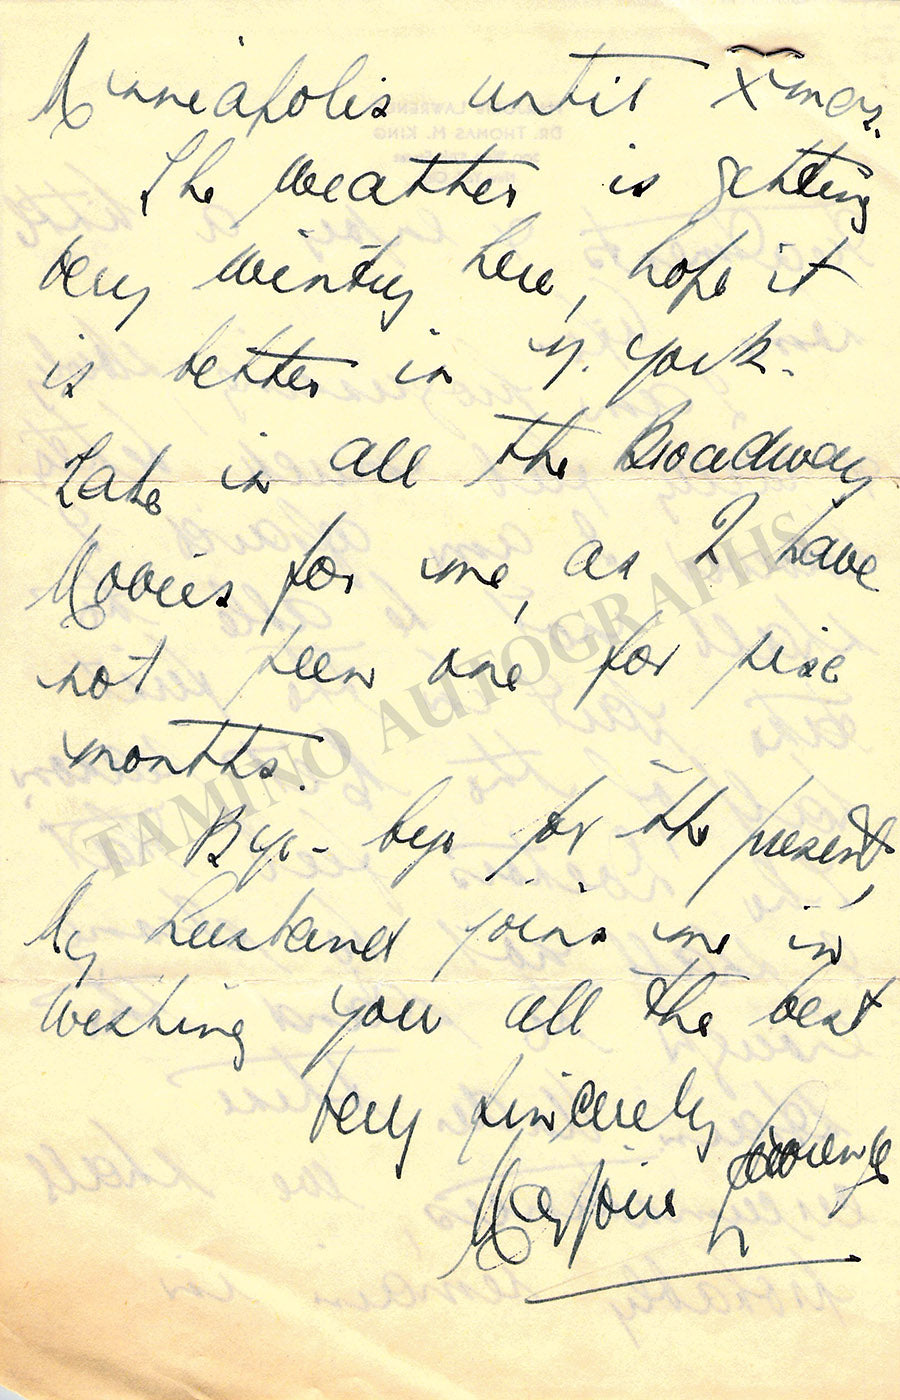 Minneapolis until Xmas.
The weather is getting
very wintry here, hope it
is better in N. York.
Take in all the Broadway
Movies for me, as I have
not seen one for six
months.
Bye-bye for the present,
My husband joins me in
wishing you all the best
Very sincerely
Marjorie Lawrence
TAMINO AUTOGRAPHS